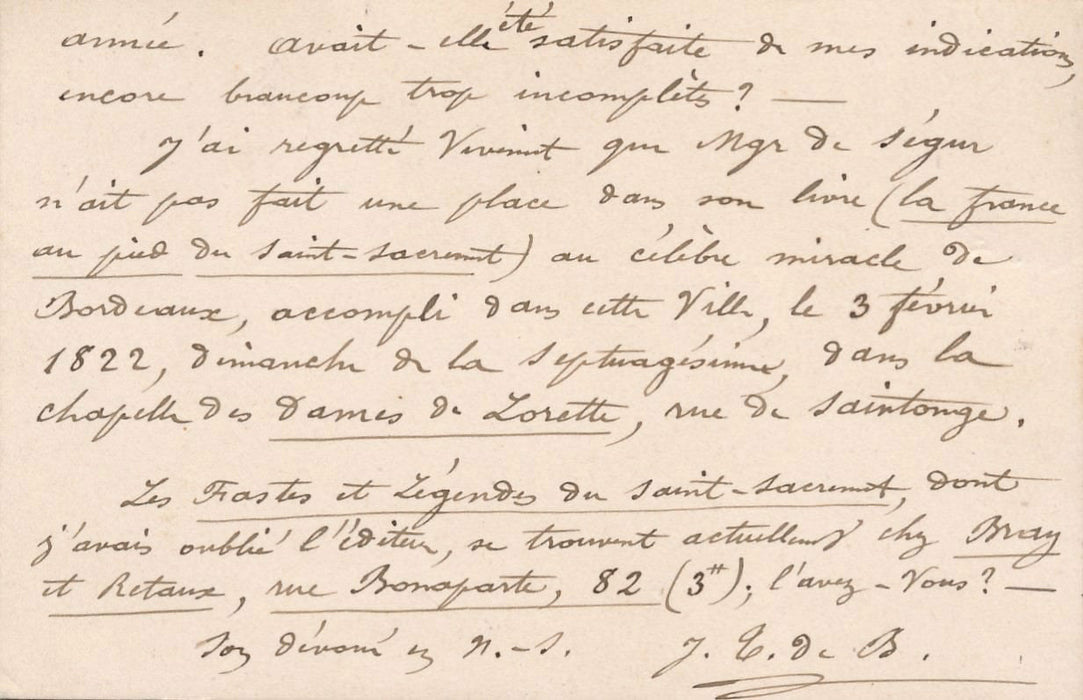 année. avait-elle été satisfaite de mes indications,
encore beaucoup trop incomplètes ? —
J'ai regretté vivement que Mgr de Ségur
n'ait pas fait une place dans son livre (la france
au pied du saint-sacrement) au célèbre miracle de
Bordeaux, accompli dans cette Ville, le 3 février
1822, dimanche de la Septuagésime, dans la
chapelle des Dames de Lorette, rue de Saintonge.
Les Fastes et Légendes du Saint-Sacrement, dont
j'avais oublié l'éditeur, se trouvent actuellement chez Bray
et Retaux, rue Bonaparte, 82 (3#); l'avez-Vous ? —
Son dévoué en N.-S. J. E. de B.